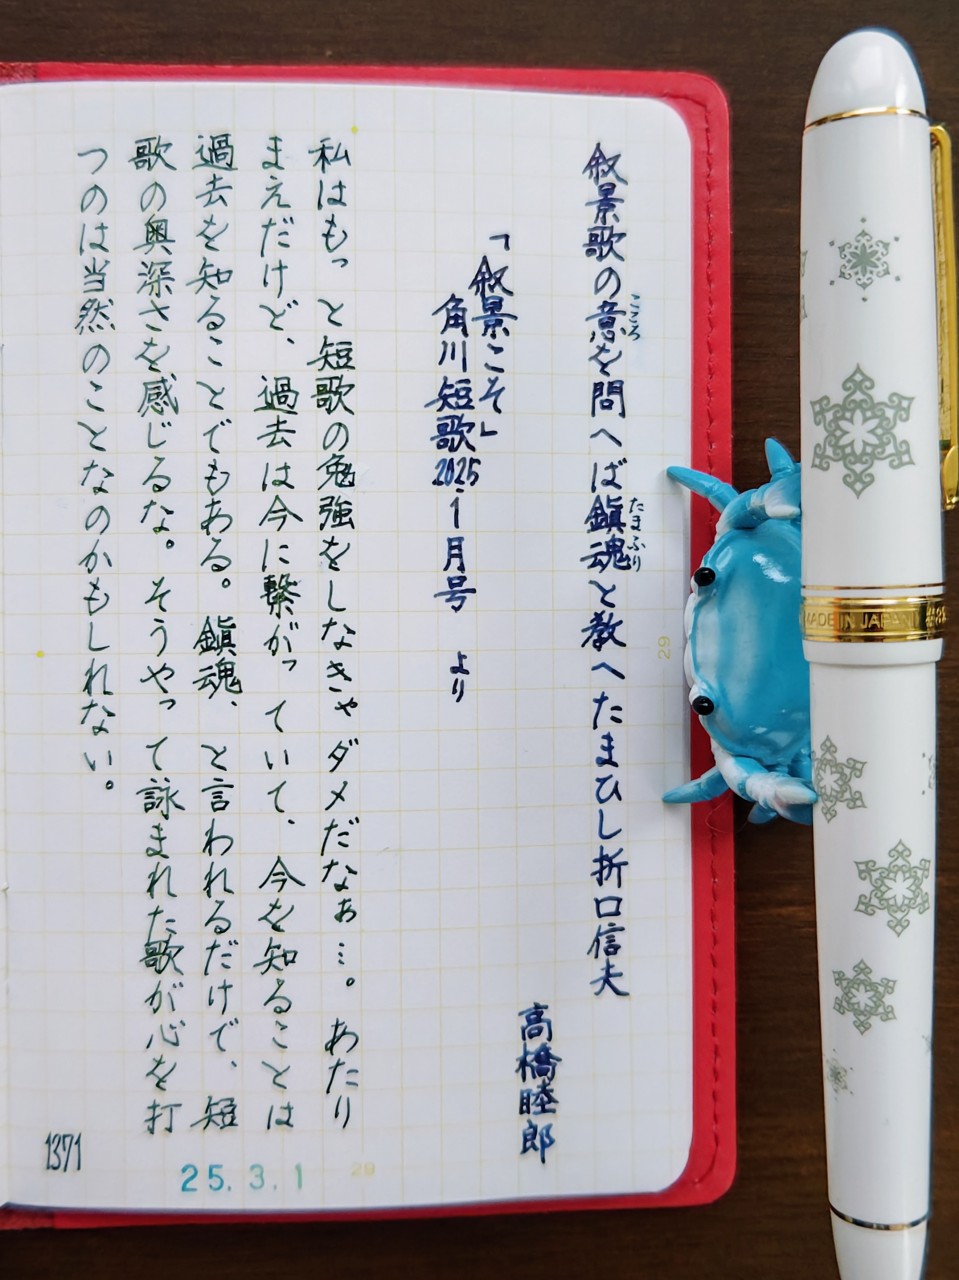 叙景歌の意を問へば鎭魂と教へたまひし折口信夫
こころ
たまふり
高橋睦郎
「叙景こそ」
角川短歌2025.1月号 より
私はもっと短歌の勉強をしなきゃダメだなぁ…。あたり
まえだけど、過去は今に繋がっていて、今を知ることは
過去を知ることでもある。鎭魂、と言われるだけで、短
歌の奥深さを感じるな。そうやって詠まれた歌が心を打
つのは当然のことなのかもしれない。
1371
25.3.1
29
29
MADE IN JAPAN